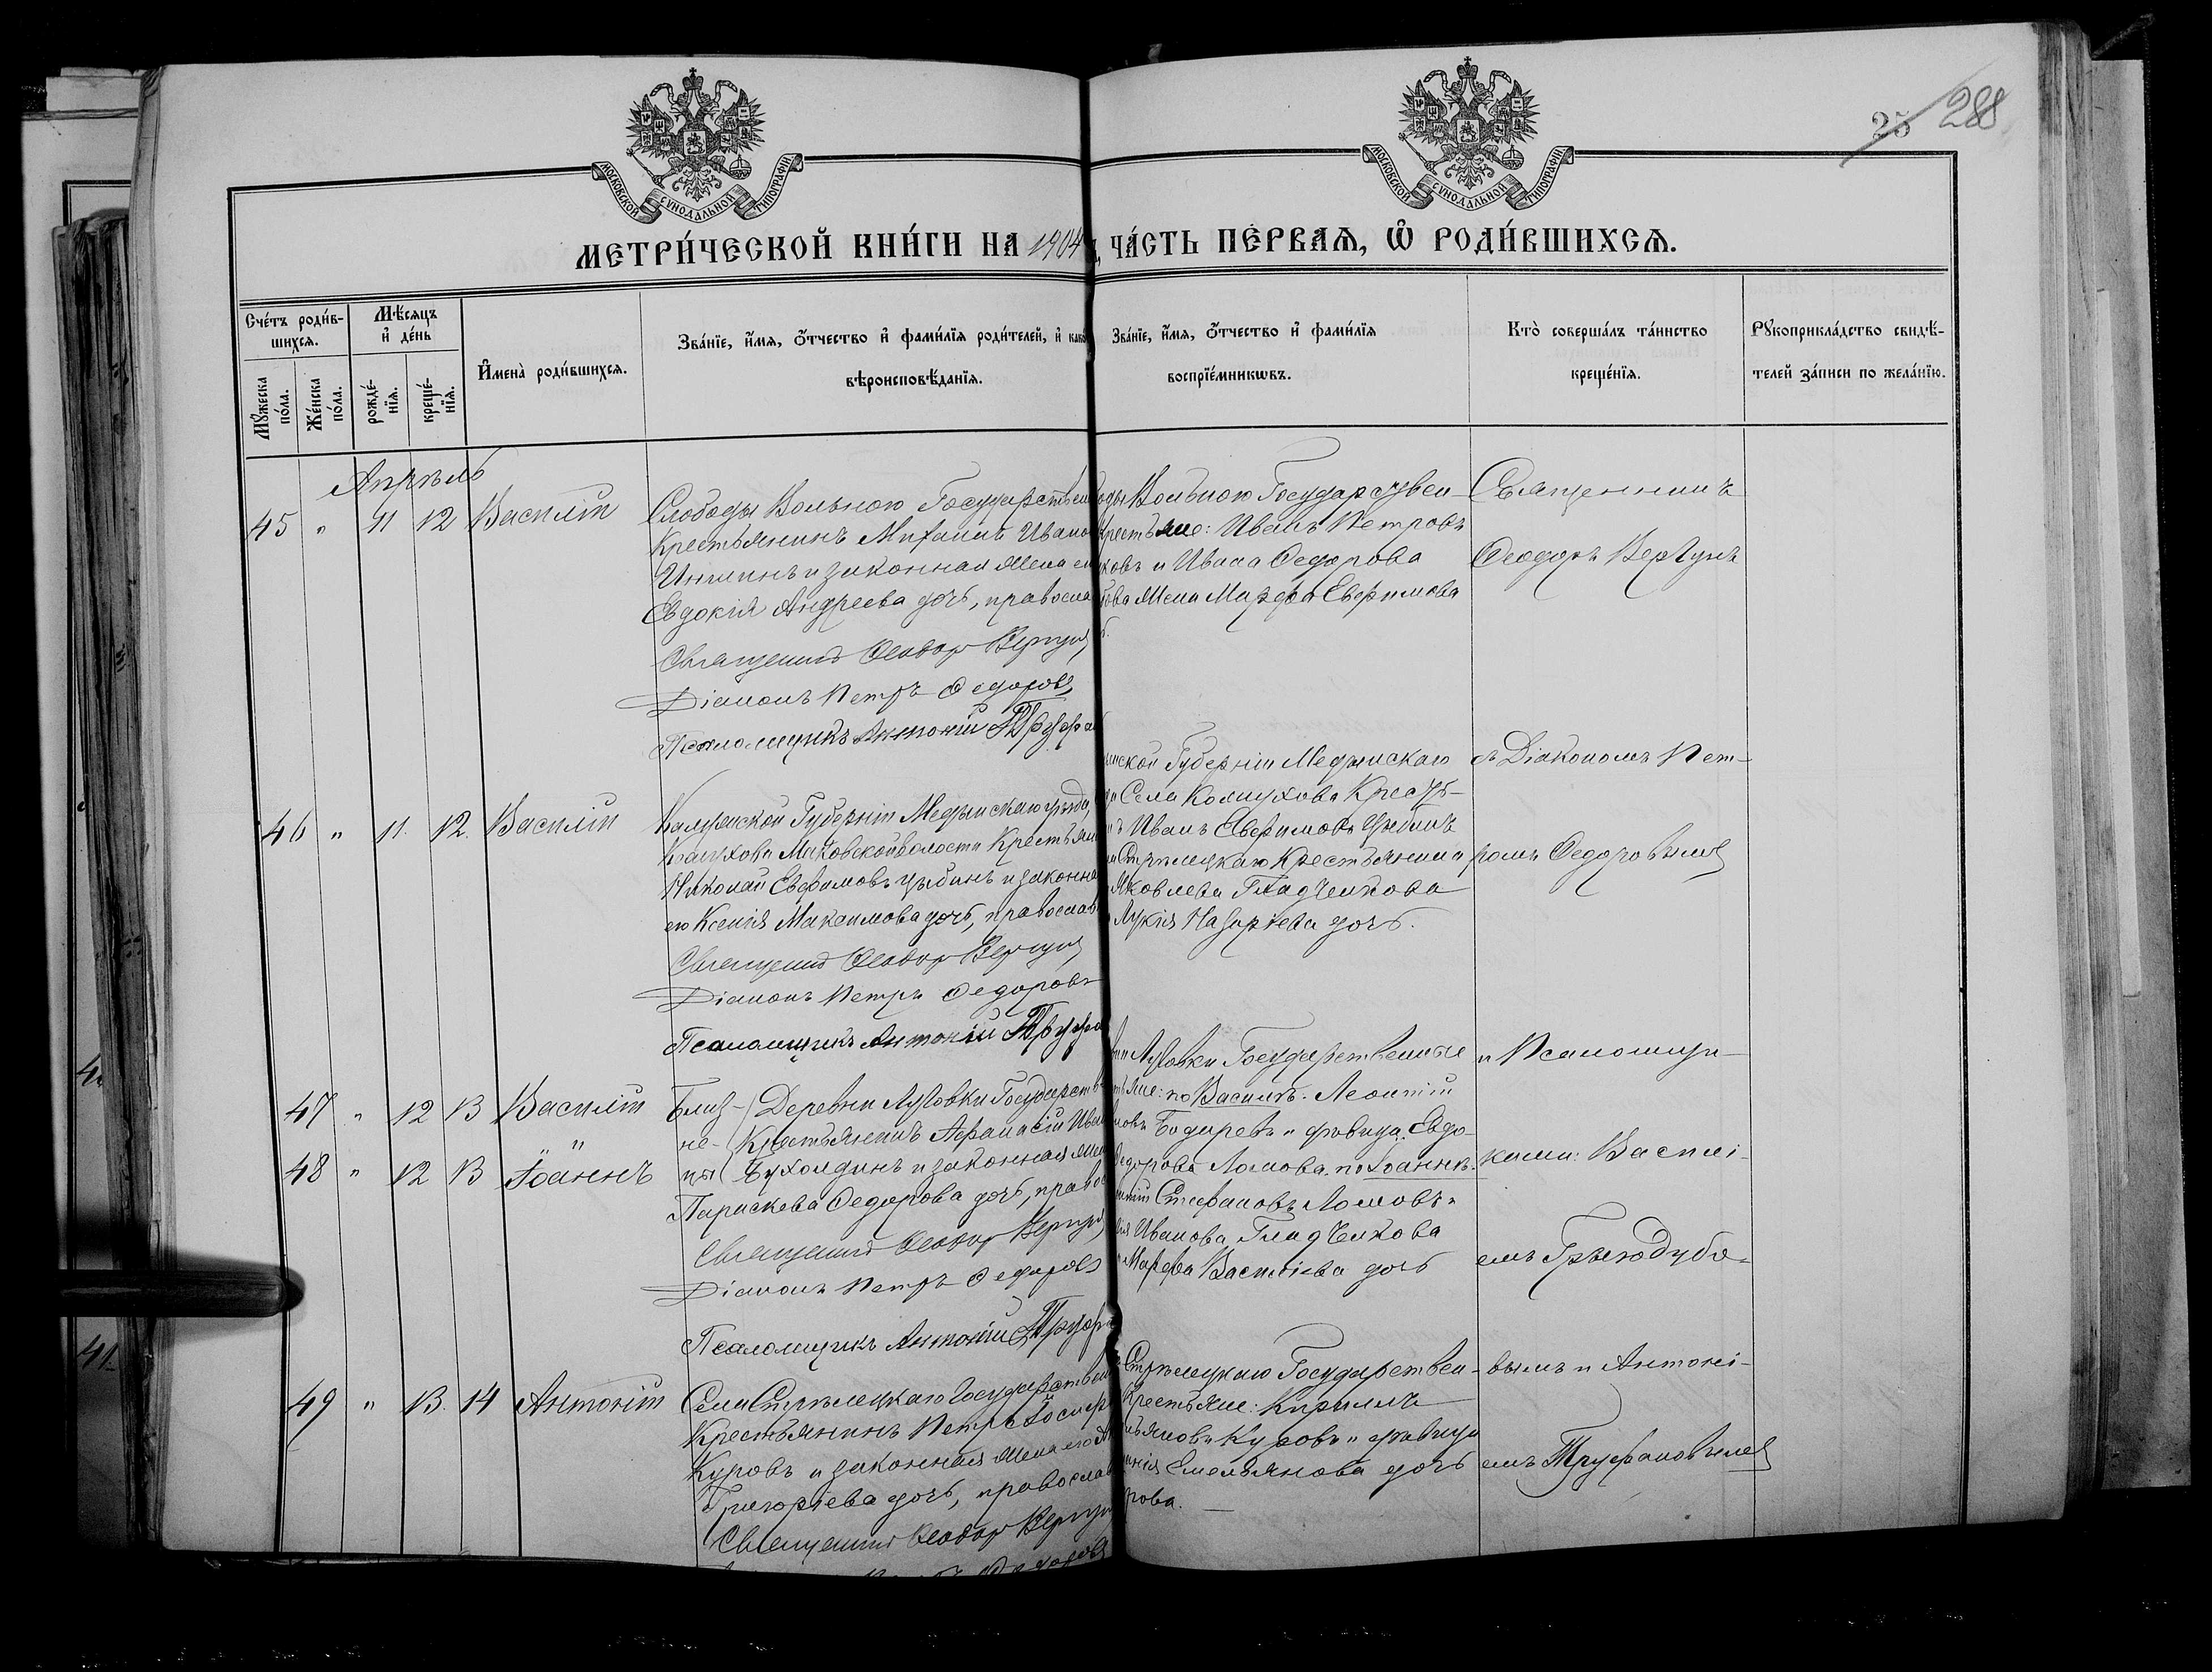 25 288
МОСКОВСКОЙ СѴНОДАЛЬНОЙ ТИПОГРАФІИ
МОСКОВСКОЙ СѴНОДАЛЬНОЙ ТИПОГРАФІИ
МЕТРИ́ЧЕСКОЙ КНИ́ГИ НА 1904
ЧА́СТЬ ПЕ́РВАѦ, Ѡ҆ РОДИ́ВШИХСѦ.
Сче́тъ роди́в-
шихсѧ.
Мꙋ́жеска по́ла.
Же́нска по́ла.
Мѣ́сѧцъ и҆ де́нь
рожде́-
нїѧ.
креще́-
нїѧ.
И҆мена̀ роди́вшихсѧ.
Зва́нїе, и҆́мѧ, ѻ҆́тчество и҆ фами́лїѧ роди́телей, и҆ како
вѣроисповѣ́данїѧ.
Зва́нїе, и҆́мѧ, ѻ҆́тчество и҆ фами́лїѧ
воспрїе́мникѡвъ.
Кто̀ соверша́лъ та́инство
креще́нїѧ.
Рꙋкоприкла́дство свидѣ́-
телей за́писи по жела́нїю.
Апрѣль
45 " 11 12 Василій
Слободы Вольною Государствен
Крестьянинъ Михаилъ Ивано
и законная жена ег
Евдокія Андреева дочь, правосла
Священникъ Ѳеодоръ Вергунъ
Діаконъ Петръ Ѳедоровъ
Псаломщикъ Антоній Труфа
оды Вольною Государствен-
Крестьяне: Иванъ Петровъ
ковъ и Ивана Ѳедорова
ова жена Марѳа Евѳимова
Священникъ
Ѳеодоръ Вергунъ
46 " 11. 12. Василій
Калужской Губерніи Медынскаго уѣзда,
Маковской волости Крестьян
Николай Евѳимовъ Цыбинъ и законна
его Ксенія Максимова дочь, православ
Священникъ Ѳеодоръ Вергунъ
Діаконъ Петръ Ѳедоровъ
Псаломщикъ Антоній Труфа
жской Губерніи Медынскаго
Села Колпухова Кресть-
ъ Иванъ Евѳимовъ Цыбинъ
Стрѣлецкаго Крестьянина
Яковлева Гладченкова
Лукія Назарьева дочь.
съ Діакономъ Пет-
ромъ Ѳедоровымъ
47 " 12 13 Василій
"
48 " 12 13 Іоаннъ
Близ-
не-
цы
Деревни Луговки Государств
Крестьянинъ Аѳанасій Иван
Бухолдинъ и законная жен
Параскева Ѳедорова дочь, правос
Священникъ Ѳеодоръ Вергунъ
Діаконъ Петръ Ѳедоровъ
Псаломщикъ Антоній Труфа
Луговки Государственные
тьяне: по Василіѣ: Леонтій
новъ Бодыревъ и дѣвица Евдо-
Ѳедорова Ломова. по Іоаннѣ.
Стефановъ Ломовъ и
Иванова Гладченкова
Марѳа Васильева дочь
и Псаломщи-
ками: Василі-
емъ Грекодубо-
49 " 13. 14 Антоній
Села Стрѣлецкаго Государствен
Крестьянинъ Петръ Іосиф
Куровъ и законная жена его
Григорьева дочь, православ
Священникъ Ѳеодоръ Вергунъ
Стрѣлецкаго Государствен-
Крестьяне: Кириллъ
ьяновъ Куровъ и дѣвица
Емельянова дочь
рова.
вымъ и Антоні-
емъ Труфановымъ